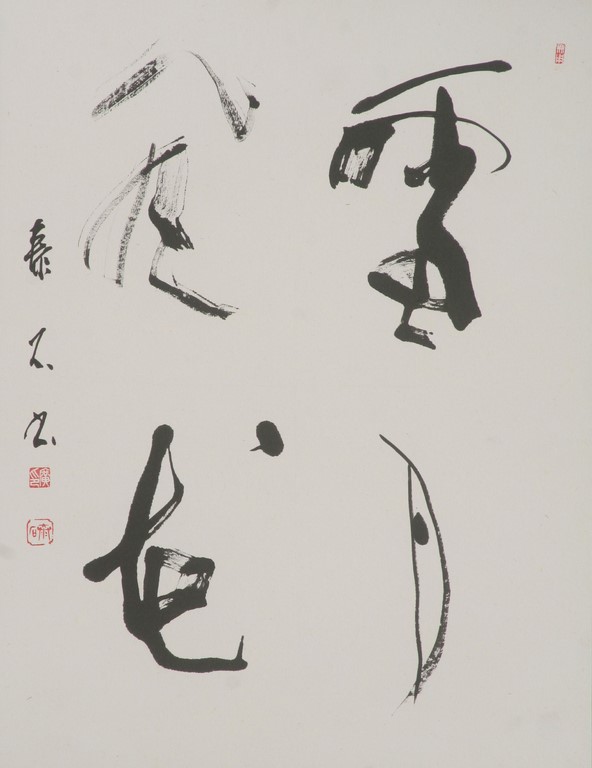 雪月
風花
泰石書